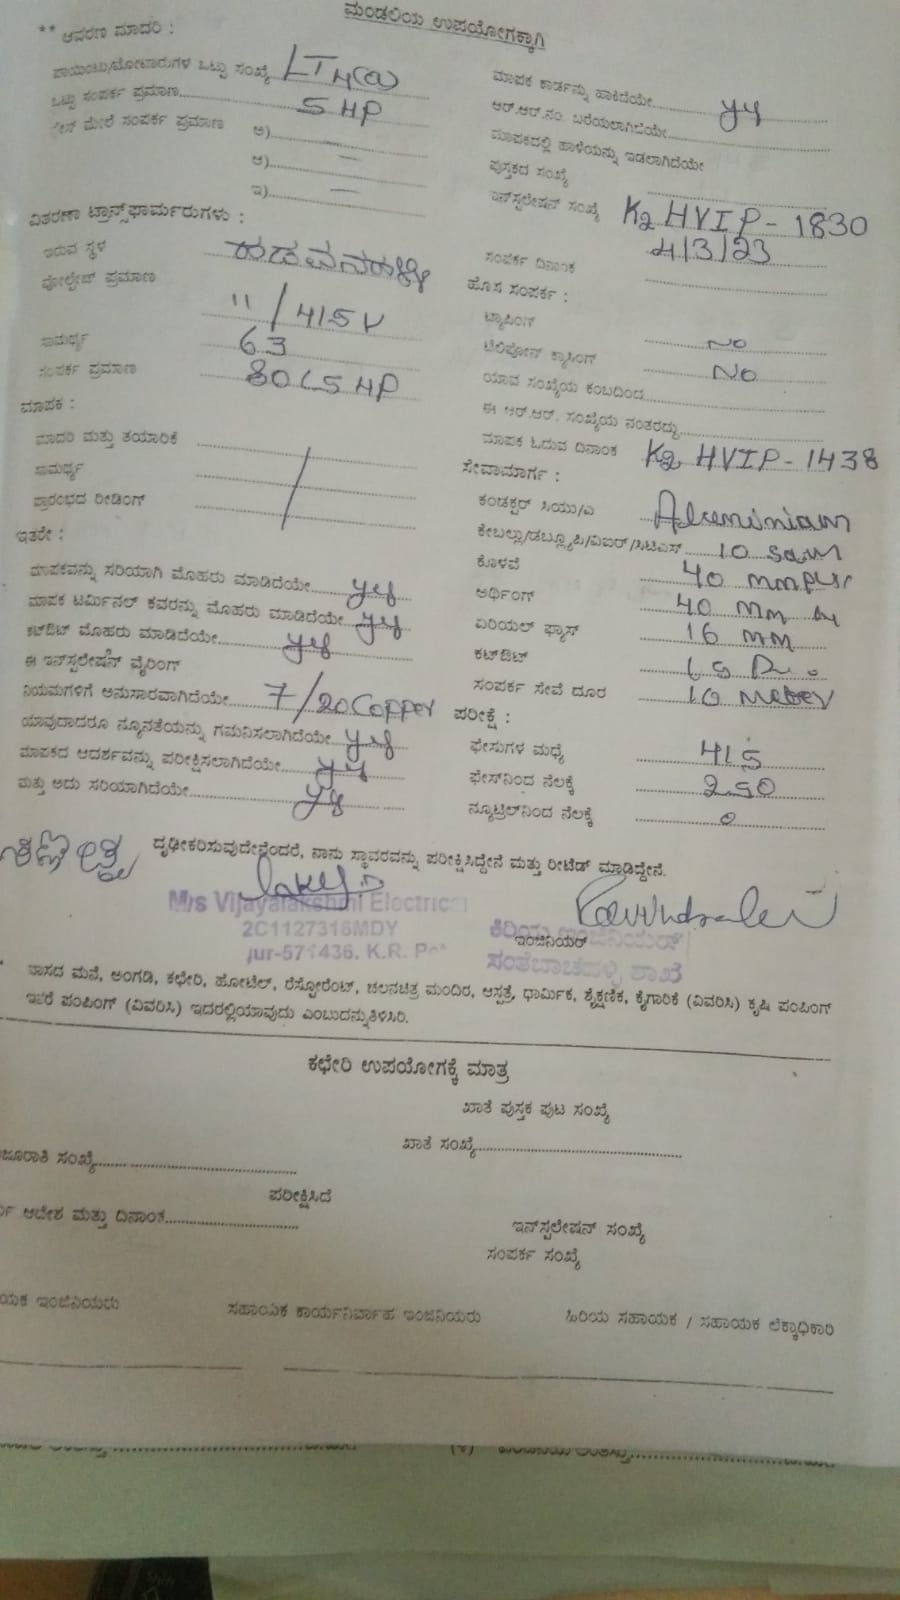 ಮಂಡಲಿಯ ಉಪಯೋಗಕ್ಕಾಗಿ
** ಆವರಣ ಮಾದರಿ :
ಪಾಯಿಂಟು/ಮೋಟಾರುಗಳ ಒಟ್ಟು ಸಂಖ್ಯೆ LT4(a)
ಒಟ್ಟು ಸಂಪರ್ಕ ಪ್ರಮಾಣ 5 HP
ಮೇಲೆ ಸಂಪರ್ಕ ಪ್ರಮಾಣ ಅ)
ಆ)
ಇ)
ವಿತರಣಾ ಟ್ರಾನ್ಸ್‌ಫಾರ್ಮರುಗಳು :
ಇರುವ ಸ್ಥಳ
ವೋಲ್ಟೇಜ್ ಪ್ರಮಾಣ 11/415V
ಸಾಮರ್ಥ್ಯ 63
ಸಂಪರ್ಕ ಪ್ರಮಾಣ
ಮಾಪಕ :
ಮಾದರಿ ಮತ್ತು ತಯಾರಿಕೆ
ಸಾಮರ್ಥ್ಯ
ಪ್ರಾರಂಭದ ರೀಡಿಂಗ್
ಇತರೇ :
ಮಾಪಕವನ್ನು ಸರಿಯಾಗಿ ಮೊಹರು ಮಾಡಿದೆಯೇ yes
ಮಾಪಕ ಟರ್ಮಿನಲ್ ಕವರನ್ನು ಮೊಹರು ಮಾಡಿದೆಯೇ yes
ಕಟ್‌ಔಟ್ ಮೊಹರು ಮಾಡಿದೆಯೇ yes
ಈ ಇನ್‌ಸ್ಟಲೇಷನ್ ವೈರಿಂಗ್
ನಿಯಮಗಳಿಗೆ ಅನುಸಾರವಾಗಿದೆಯೇ 7/20 Copper
ಯಾವುದಾದರೂ ನ್ಯೂನತೆಯನ್ನು ಗಮನಿಸಲಾಗಿದೆಯೇ yes
ಮಾಪಕದ ಆದರ್ಶವನ್ನು ಪರೀಕ್ಷಿಸಲಾಗಿದೆಯೇ yes
ಮತ್ತು ಅದು ಸರಿಯಾಗಿದೆಯೇ yes
ಮಾಪಕ ಕಾರ್ಡನ್ನು ಹಾಕಿದೆಯೇ yes
ಆರ್.ಆರ್.ನಂ. ಬರೆಯಲಾಗಿದೆಯೇ
ಮಾಪಕದಲ್ಲಿ ಹಾಳೆಯನ್ನು ಇಡಲಾಗಿದೆಯೇ
ಪುಸ್ತಕದ ಸಂಖ್ಯೆ
ಇನ್‌ಸ್ಟಲೇಷನ್ ಸಂಖ್ಯೆ K2 HVIP - 1830
ಸಂಪರ್ಕ ದಿನಾಂಕ 4/3/23
ಹೊಸ ಸಂಪರ್ಕ :
ಟ್ಯಾಪಿಂಗ್ NO
ಟೆಲಿಪೋನ್ ಕ್ರಾಸಿಂಗ್ NO
ಯಾವ ಸಂಖ್ಯೆಯ ಕಂಬದಿಂದ
ಈ ಆರ್.ಆರ್. ಸಂಖ್ಯೆಯ ನಂತರದ್ದು
ಮಾಪಕ ಓದುವ ದಿನಾಂಕ K2 HVIP - 1438
ಸೇವಾಮಾರ್ಗ :
ಕಂಡಕ್ಟರ್ ಸಿಯು/ಎ Aluminium
ಕೇಬಲ್ಲು/ಡಬ್ಲ್ಯೂಪಿ/ವಿಐಆರ್/ಸಿಟಿಎಸ್ 10 sqm
ಕೊಳವೆ 40 mm
ಅರ್ಥಿಂಗ್ 40 mm
ಏರಿಯಲ್ ಫ್ಯೂಸ್ 16 mm
ಕಟ್‌ಔಟ್
ಸಂಪರ್ಕ ಸೇವೆ ದೂರ 10 meter
ಪರೀಕ್ಷೆ :
ಫೇಸುಗಳ ಮಧ್ಯೆ 415
ಫೇಸ್‌ನಿಂದ ನೆಲಕ್ಕೆ 250
ನ್ಯೂಟ್ರಲ್‌ನಿಂದ ನೆಲಕ್ಕೆ 0
ದೃಢೀಕರಿಸುವುದೇನೆಂದರೆ, ನಾನು ಸ್ಥಾವರವನ್ನು ಪರೀಕ್ಷಿಸಿದ್ದೇನೆ ಮತ್ತು ರೀಟೆಡ್ ಮಾಡಿದ್ದೇನೆ.
M/s Vijayalakshmi Electrical
2C1127316MDY
571436. K.R.
ಕಿರಿಯ ಇಂಜಿನಿಯರ್
ಇಂಜಿನಿಯರ್
ಸಂತೆಬಾಚಹಳ್ಳಿ ಶಾಖೆ
ವಾಸದ ಮನೆ, ಅಂಗಡಿ, ಕಛೇರಿ, ಹೋಟೆಲ್, ರೆಸ್ಟೋರೆಂಟ್, ಚಲನಚಿತ್ರ ಮಂದಿರ, ಆಸ್ಪತ್ರೆ, ಧಾರ್ಮಿಕ, ಶೈಕ್ಷಣಿಕ, ಕೈಗಾರಿಕೆ (ವಿವರಿಸಿ) ಕೃಷಿ ಪಂಪಿಂಗ್
ಇತರೆ ಪಂಪಿಂಗ್ (ವಿವರಿಸಿ) ಇದರಲ್ಲಿಯಾವುದು ಎಂಬುದನ್ನುತಿಳಿಸಿರಿ.
ಕಛೇರಿ ಉಪಯೋಗಕ್ಕೆ ಮಾತ್ರ
ಖಾತೆ ಪುಸ್ತಕ ಪುಟ ಸಂಖ್ಯೆ
ಖಾತೆ ಸಂಖ್ಯೆ
ಜೂರಾತಿ ಸಂಖ್ಯೆ
ಪರೀಕ್ಷಿಸಿದೆ
ಆದೇಶ ಮತ್ತು ದಿನಾಂಕ
ಇನ್‌ಸ್ಟಲೇಷನ್ ಸಂಖ್ಯೆ
ಸಂಪರ್ಕ ಸಂಖ್ಯೆ
ಯಕ ಇಂಜಿನಿಯರು
ಸಹಾಯಕ ಕಾರ್ಯನಿರ್ವಾಹ ಇಂಜಿನಿಯರು
ಹಿರಿಯ ಸಹಾಯಕ / ಸಹಾಯಕ ಲೆಕ್ಕಾಧಿಕಾರಿ